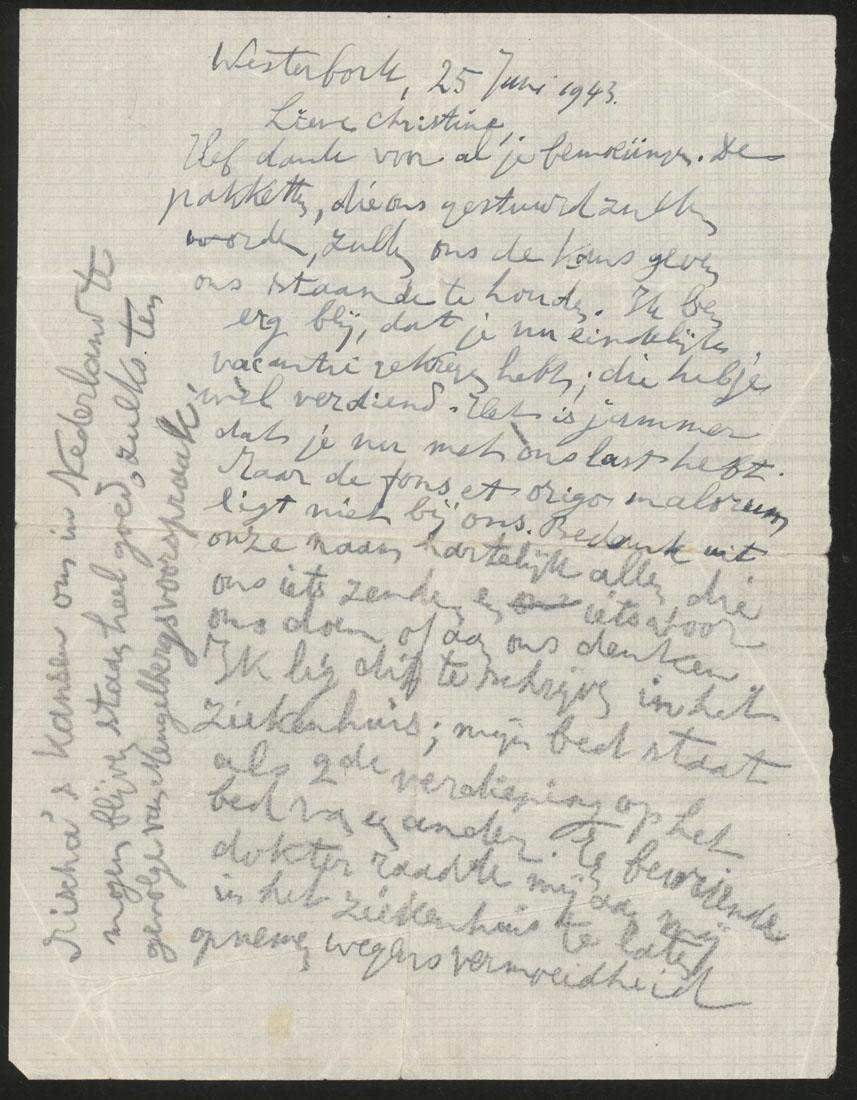 Westerbork, 25 Juni 1943.
Lieve Christine,
Veel dank voor al je bemoeiingen. De
pakketten, die ons gestuurd zullen
worden, zullen ons de kans geven
ons staande te houden. Ik ben
erg blij, dat je nu eindelijk
vacantie gekregen hebt; die heb je
wel verdiend. Het is jammer
dat je nu met ons last hebt.
Maar de fons et origo malorum
ligt niet bij ons. Bedank uit
onze naam hartelijk allen die
ons iets zenden en iets voor
ons doen of aan ons denken.
Ik lig dit te schrijven in het
ziekenhuis; mijn bed staat
als 2de verdieping op het
bed van een ander. Een bevriende
dokter raadde mij aan mij
in het ziekenhuis te laten
opnemen wegens vermoeidheid
Mischa's kansen om in Nederland te
mogen blijven staan heel goed, zulks ten
gevolge van Mengelbergs voorspraak.